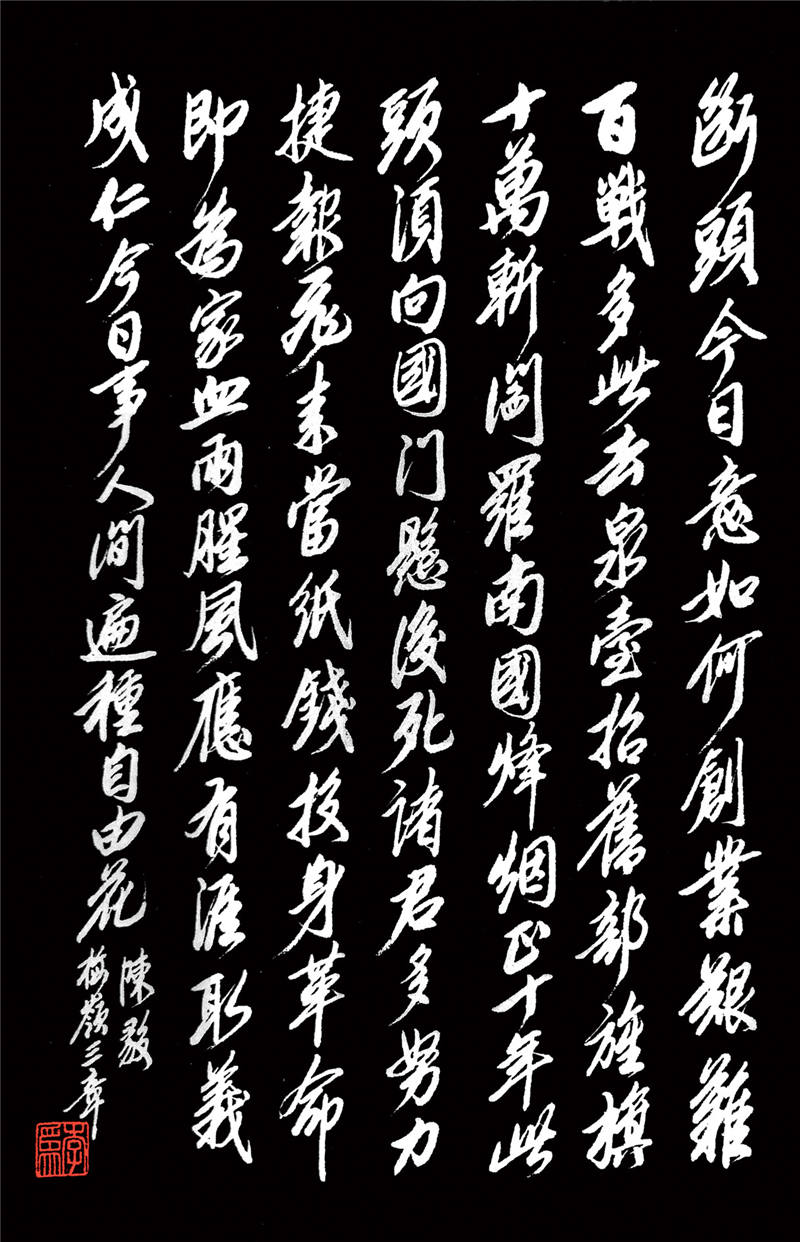 斷頭今日意如何創業艱難
百戰多此去泉臺招舊部旌旗
十萬斬閻羅南國烽烟正十年此
頭須向國門懸後死諸君多努力
捷報飛來當紙錢投身革命
即為家血雨腥風應有涯取義
成仁今日事人間遍種自由花
陳毅
梅嶺三章